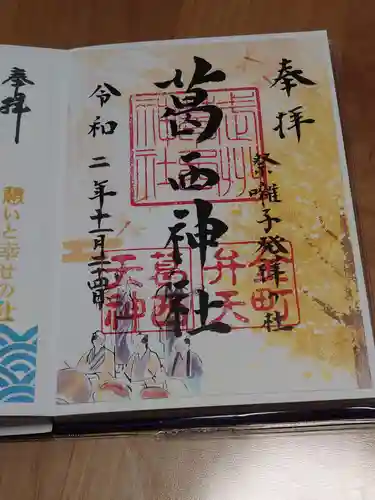 奉拝
祭囃子発祥の社
葛西神社
令和二年十一月二十四日
葛西
神社
葛西
天神
金町
弁天
奉拝
願いと幸せの社